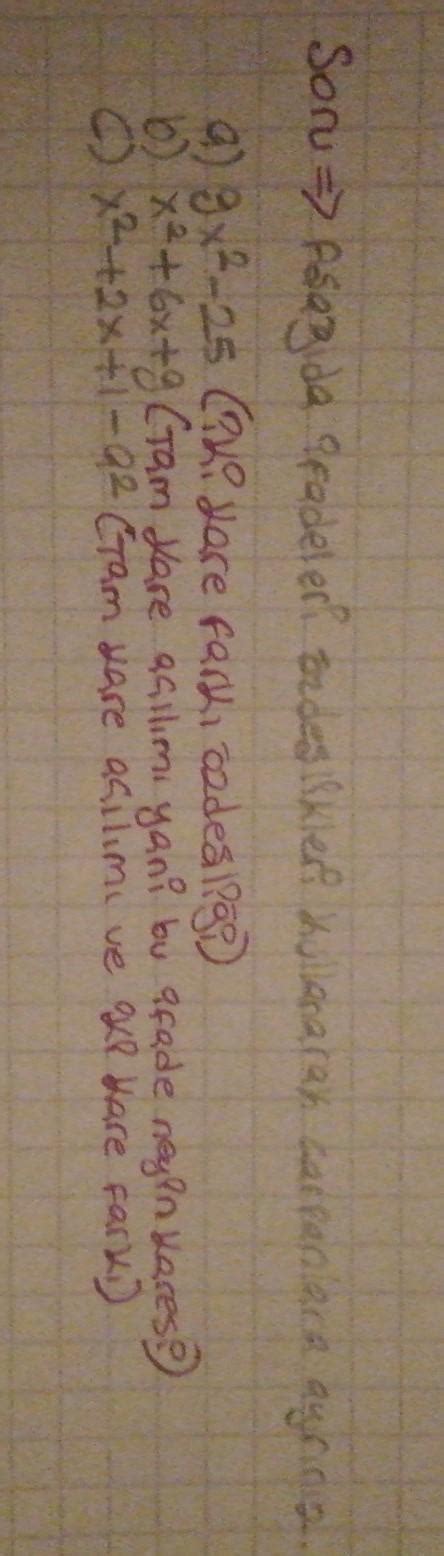 Soru => Aşağıda ifadeleri özdeşlikleri kullanarak çarpanlara ayırınız.
a) 9x²-25 (iki kare farkı özdeşliği)
b) x²+6x+9 (Tam kare açılımı yani bu ifade neyin karesi?)
c) x²+2x+1-a² (Tam kare açılımı ve iki kare farkı)